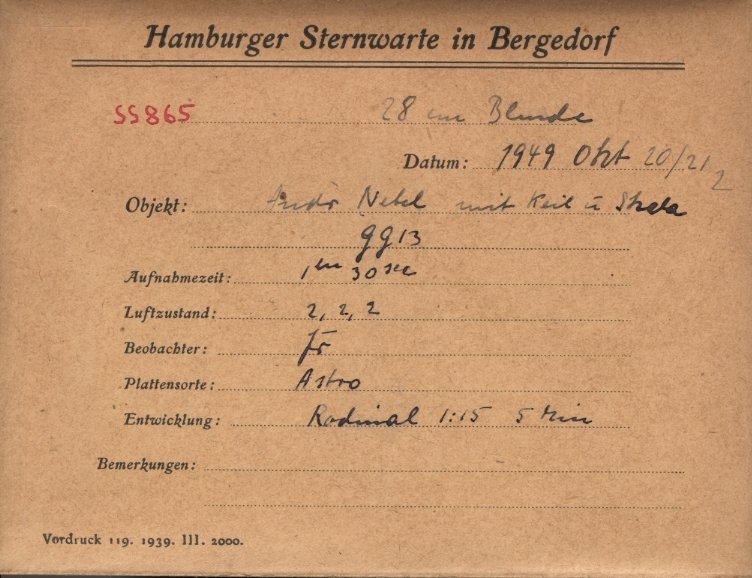 Hamburger Sternwarte in Bergedorf
SS865 28 cm Blende
Datum: 1949 Okt 20/21
2
Objekt: Andr Nebel mit Keil u Skala
gg13
Aufnahmezeit: 1m 30sec
Luftzustand: 2, 2, 2
Beobachter:
Plattensorte: Astro
Entwicklung: Rodinal 1:15 5 Min
Bemerkungen:
Vordruck 119. 1939. III. 2000.